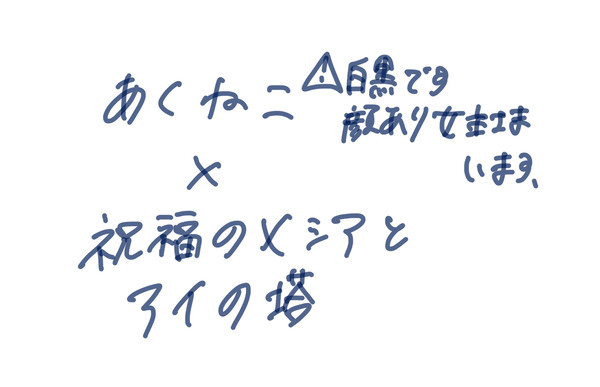 あくねこ
⚠白黒です
顔あり女主はま
います、
×
祝福のメシアと
アイの塔